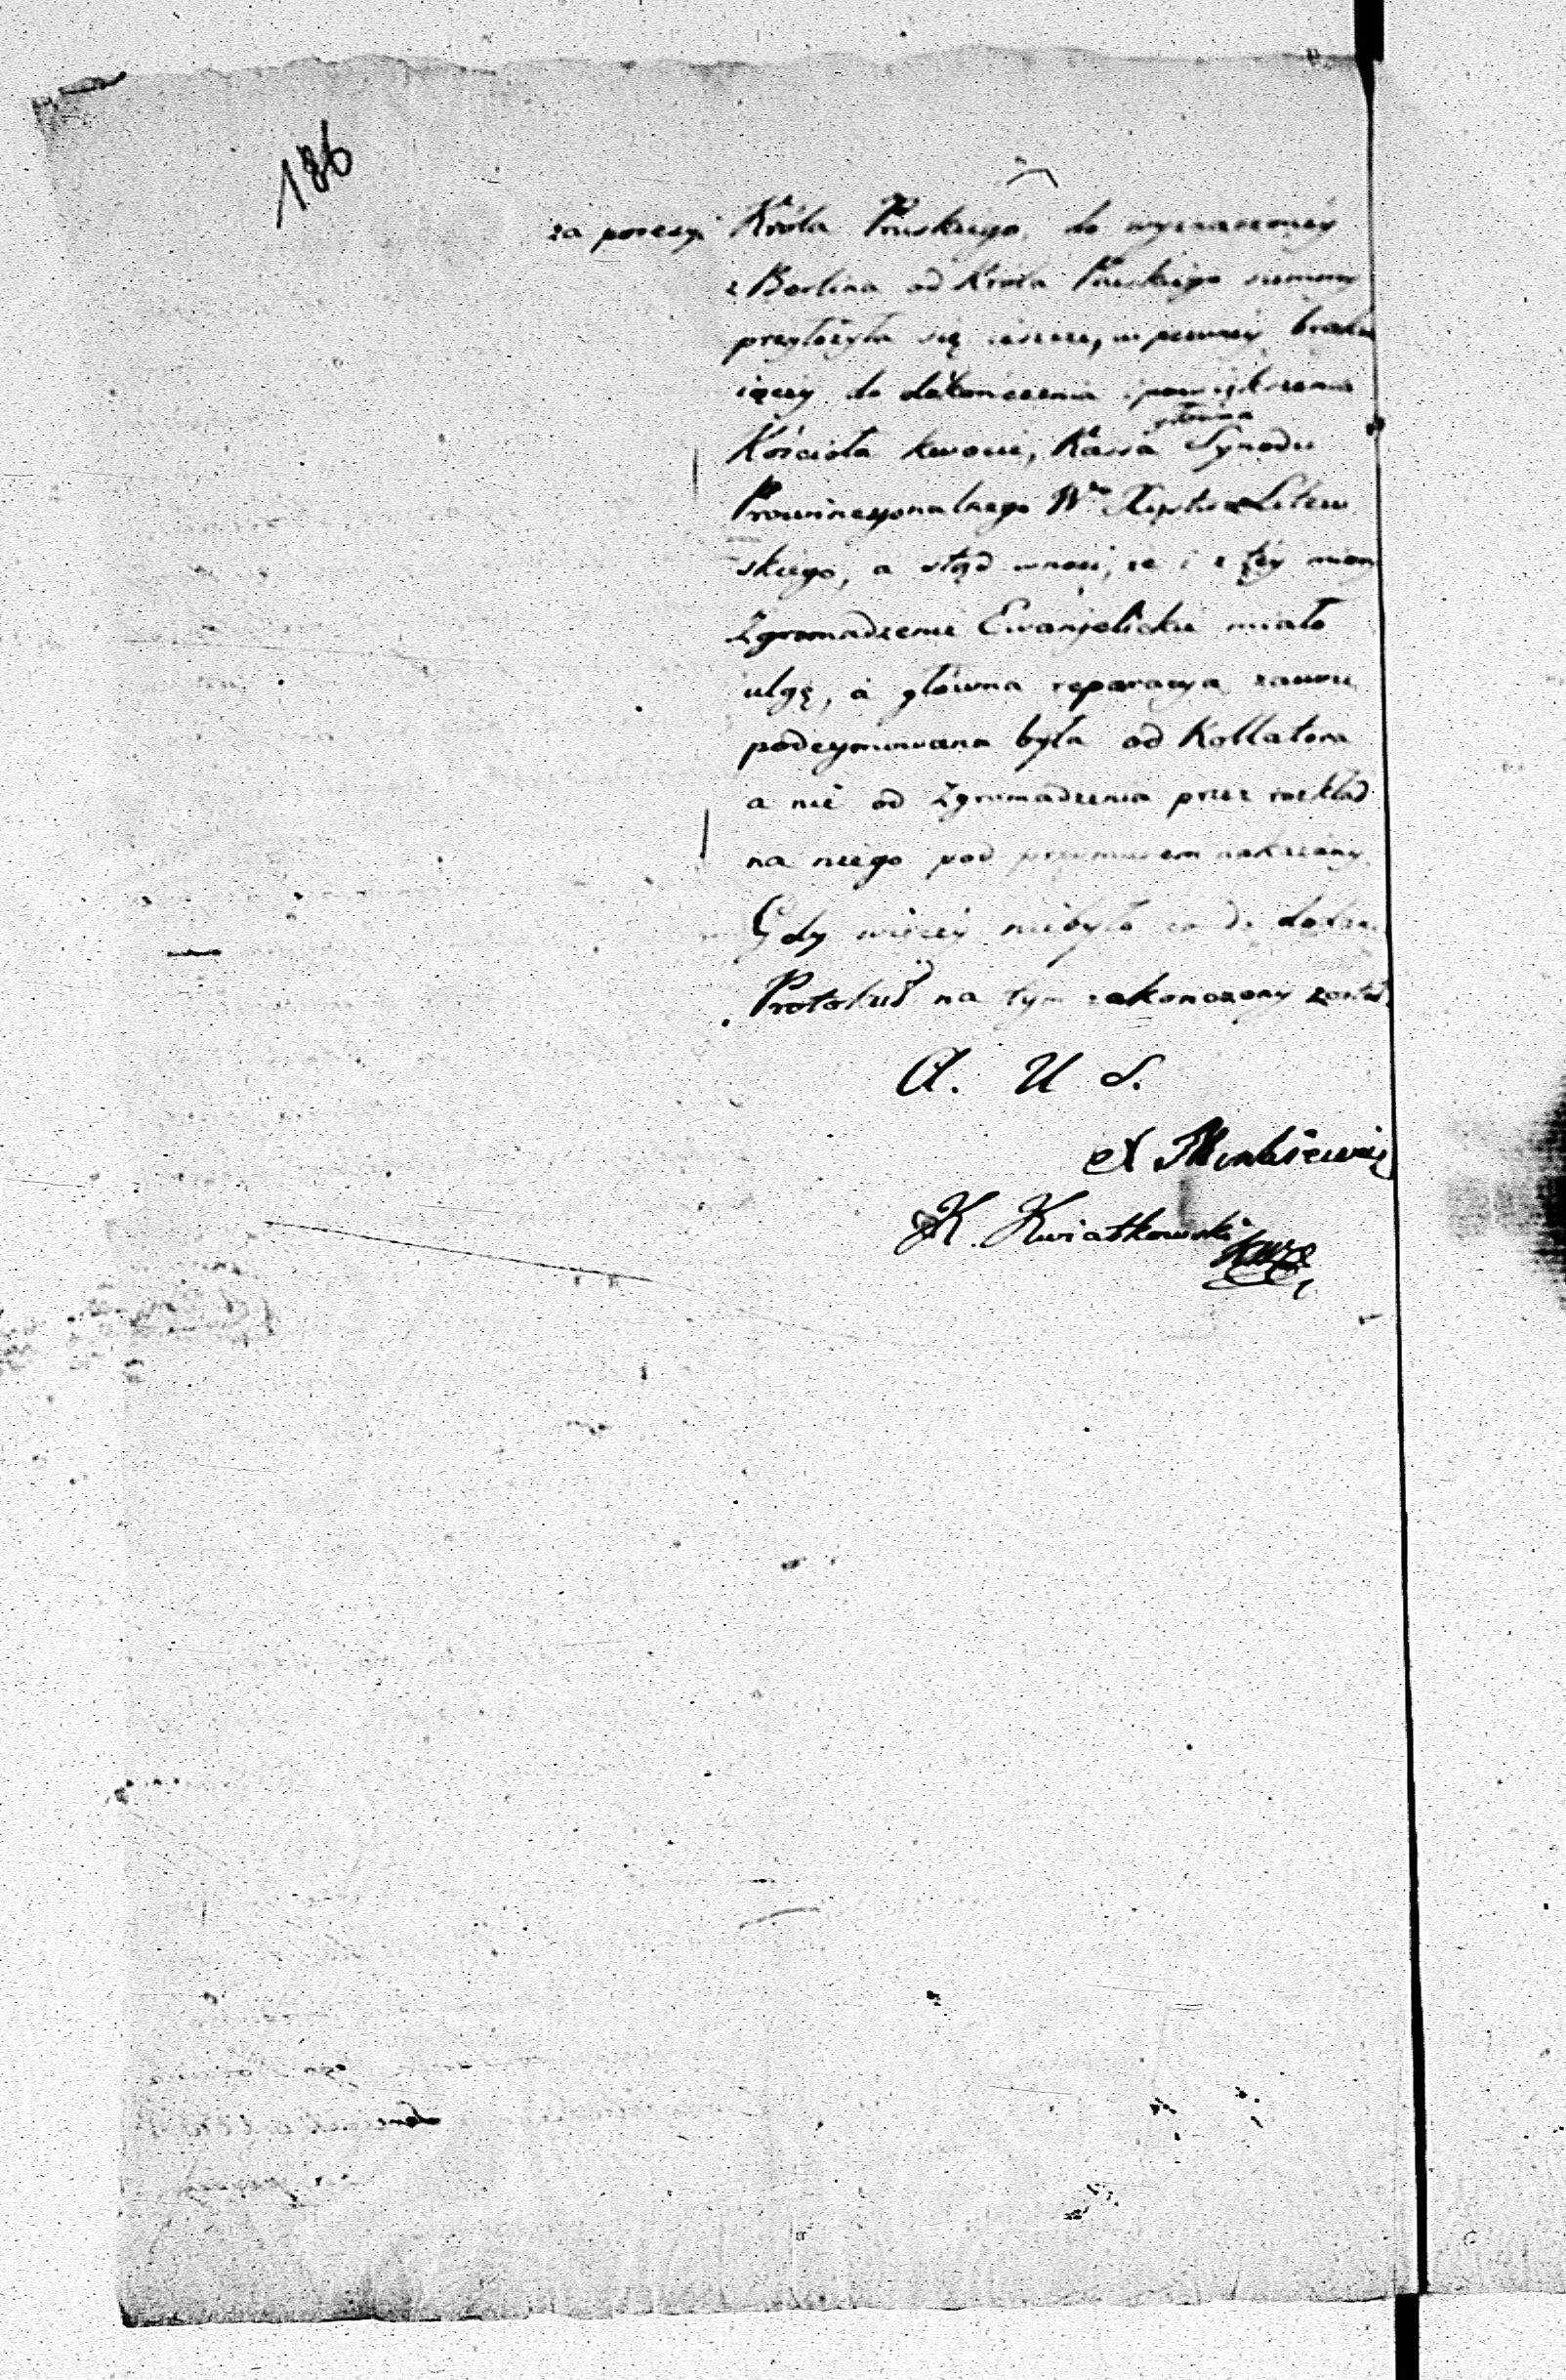 186
za porczyi Króla Pruskiego, do wyznaczoney
z Berlina od Króla Pruskiego summy
przyłożyła się ieszcze, w pewney braku
iącey do dokończenia i powiększenia
główna
Kościoła kwocie, Kassa Synodu
Prowincyonalnego Wo Xięstwa Litew
skiego, a stąd wnosi, że i z tey miary
Zgromadzenie Ewanjelickie miało
ulgę, a główna reparacya zawsze
podeymowana była od Kollatora
a nie od Zgromadzenia przez rozkład
na niego pod przymusem nakazany
Gdy więcey niebyło co do dodania
Protokuł na tym zakończony został.
A. U S.
K. Kwiatkowski